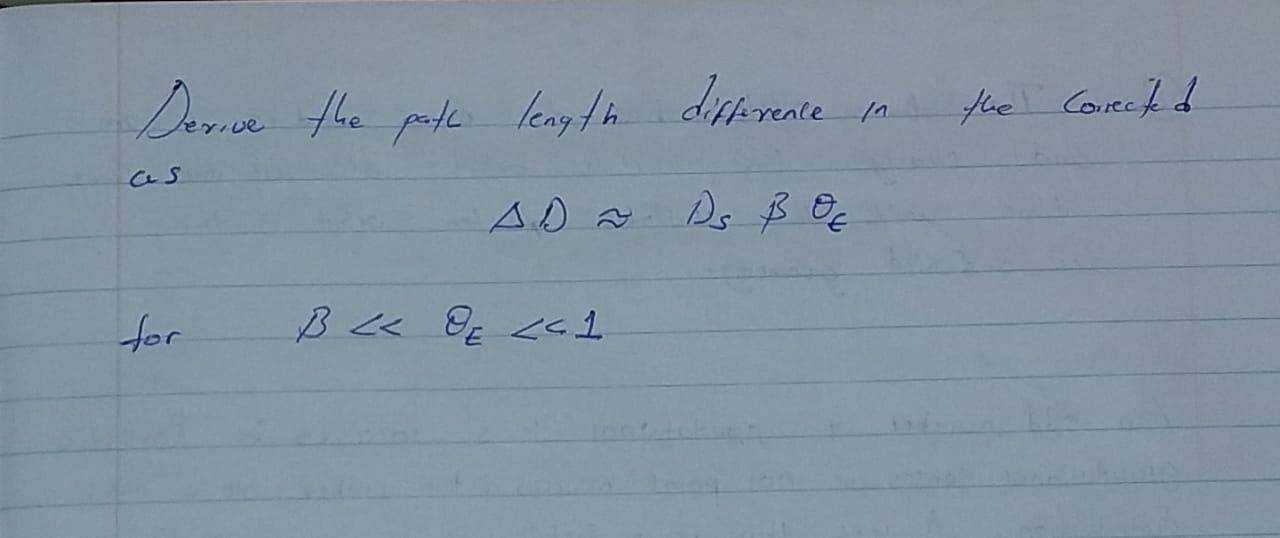 Derive the path length difference in the corrected
as
ΔD ≈ Ds β θE
for β << θE << 1